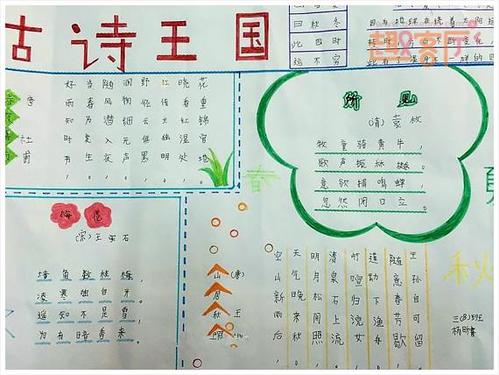 古诗王国
曰秋冬
此四时
运不穷
趣客厅
杜甫
好雨知时节，
当春乃发生。
随风潜入夜，
润物细无声。
野径云俱黑，
江船火独明。
晓看红湿处，
花重锦官城。
所见
(清)袁枚
牧童骑黄牛，
歌声振林樾。
意欲捕鸣蝉，
忽然闭口立。
春
夏
梅花
(宋)王安石
墙角数枝梅，
凌寒独自开。
遥知不是雪，
为有暗香来。
山居秋暝
(唐)王维
空山新雨后，
天气晚来秋。
明月松间照，
清泉石上流。
竹喧归浣女，
莲动下渔舟。
随意春芳歇，
王孙自可留。
秋